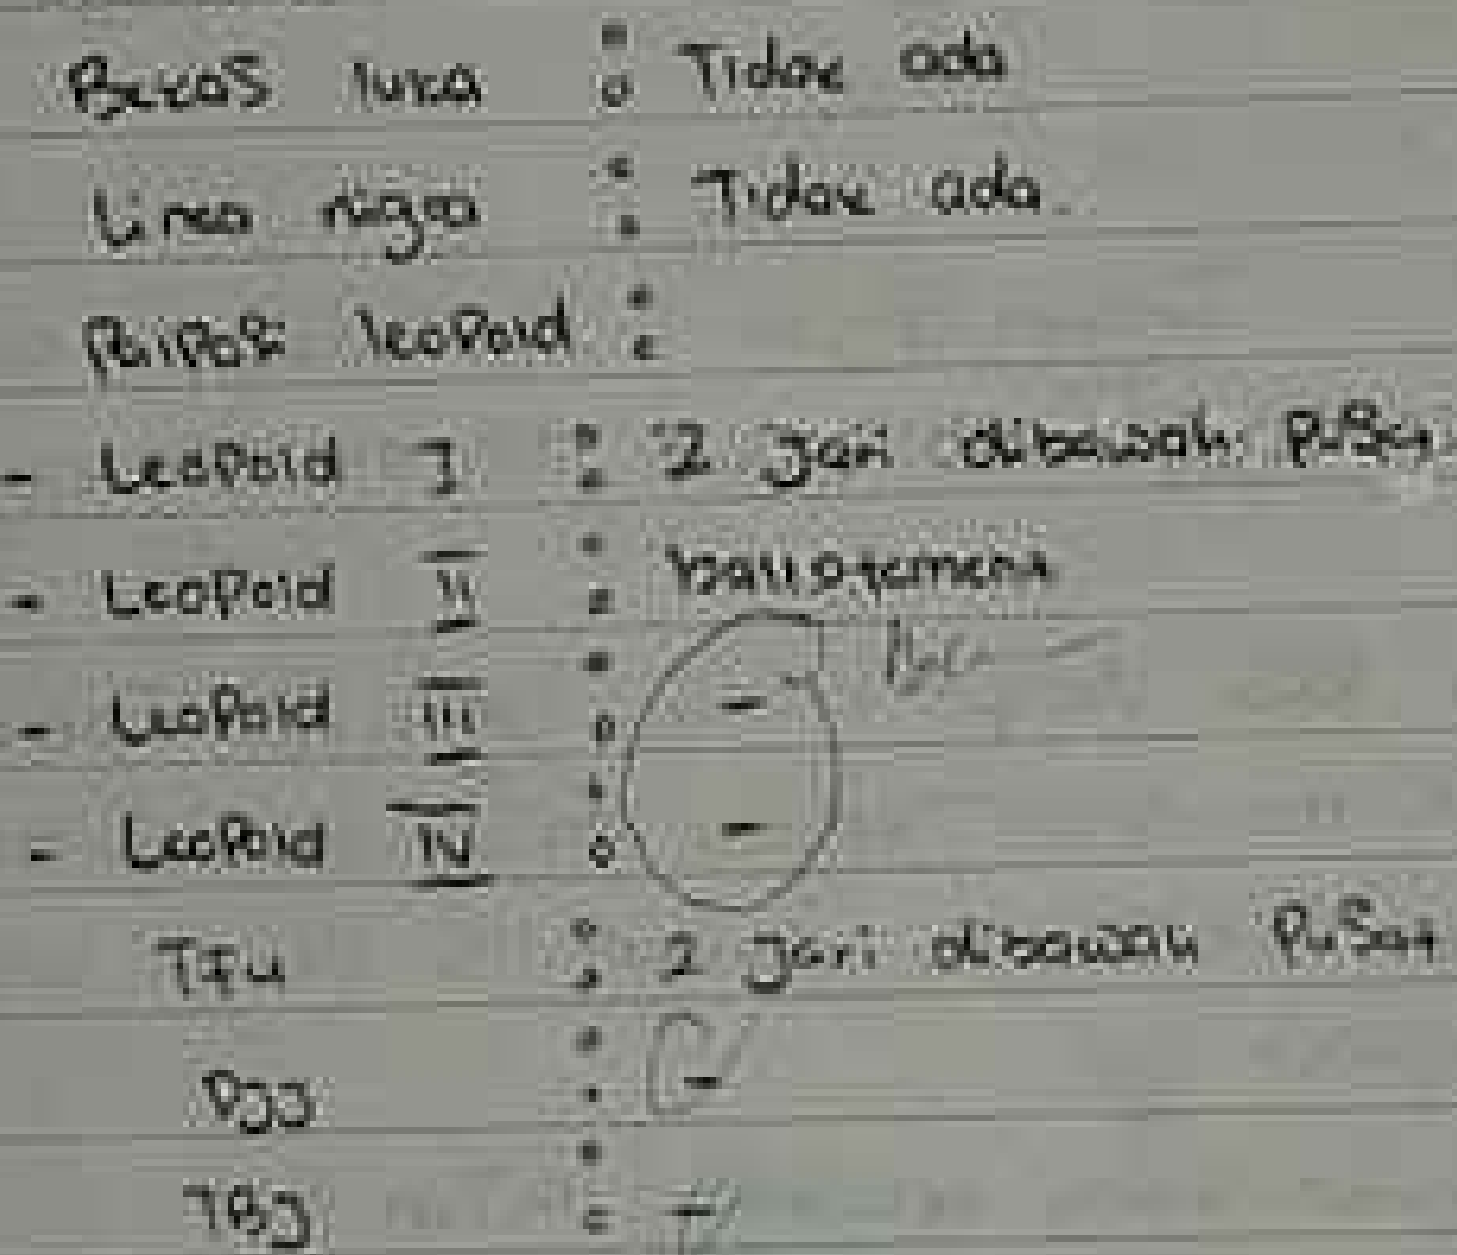 Bekas luka : Tidak ada
Linea nigra : Tidak ada
Palpasi leopold :
- Leopold I : 2 jari dibawah Pusat
- Leopold II : ballotement
- Leopold III : -
- Leopold IV : -
TFU : 2 jari dibawah Pusat
DJJ : -
TBJ : -